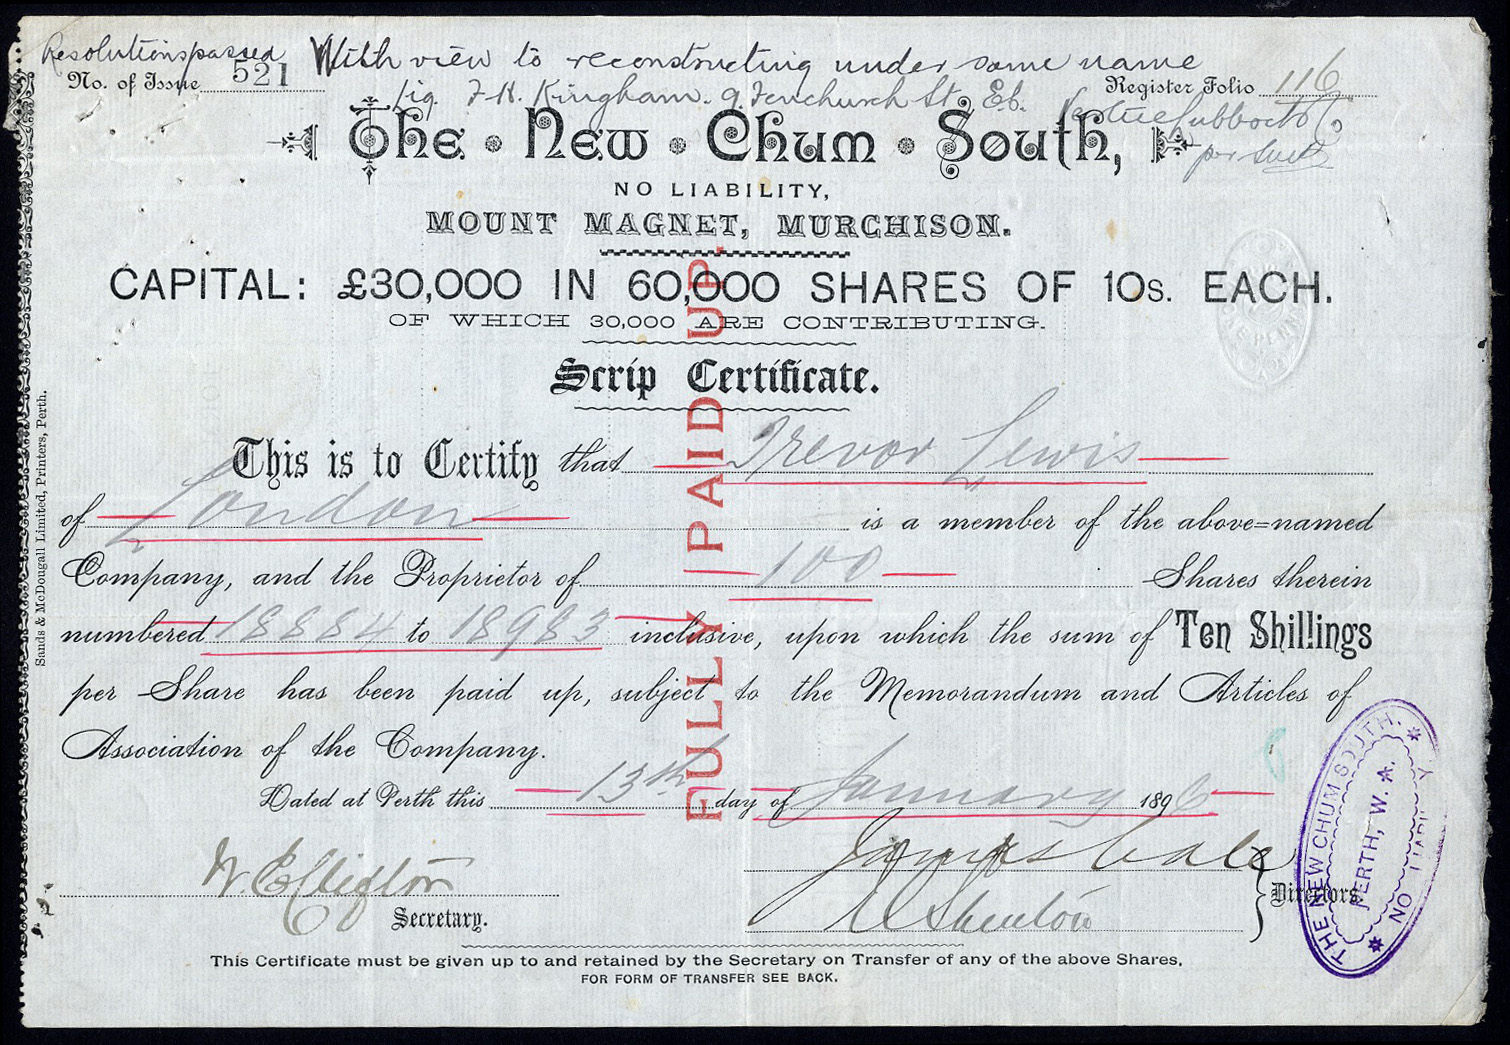 Resolutions passed With view to reconstructing under same name
No. of Issue 521
Register Folio 116
Liq. F. H. Kingham. 9 Fenchurch St. E.C.
per
The New Chum South,
NO LIABILITY,
MOUNT MAGNET, MURCHISON.
CAPITAL: £30,000 IN 60,000 SHARES OF 10s. EACH.
OF WHICH 30,000 ARE CONTRIBUTING.
ONE PENNY
Scrip Certificate.
FULLY PAID UP.
This is to Certify that Trevor Lewis
of London is a member of the above=named
Company, and the Proprietor of 100 Shares therein
numbered 18884 to 18983 inclusive, upon which the sum of Ten Shillings
per Share has been paid up, subject to the Memorandum and Articles of
Association of the Company.
Dated at Perth this 13th day of January 1896
James
Secretary.
Shenton
Directors.
THE NEW CHUM SOUTH.
NO LIABILITY
PERTH, W. A.
This Certificate must be given up to and retained by the Secretary on Transfer of any of the above Shares,
FOR FORM OF TRANSFER SEE BACK.
Sands & McDougall Limited, Printers, Perth.